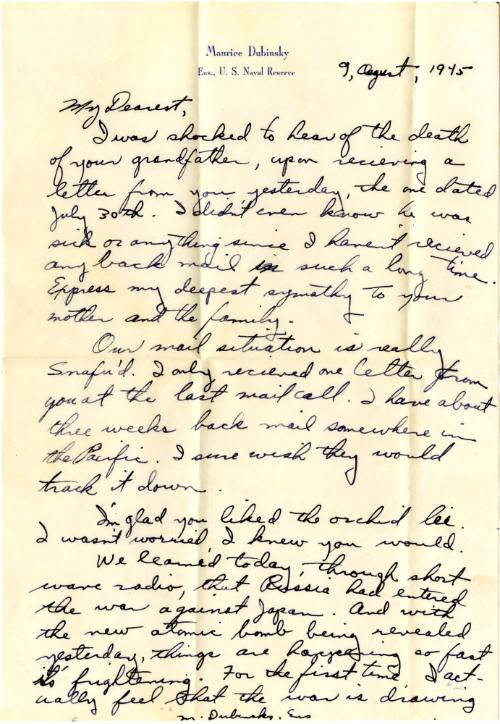 Maurice Dubinsky
Ens., U. S. Naval Reserve
9, August, 1945
My Dearest,
I was shocked to hear of the death
of your grandfather, upon recieving a
letter from you yesterday, the one dated
July 30th. I didn't even know he was
sick or anything since I haven't recieved
any back mail in such a long time.
Express my deepest symathy to your
mother and the family.
Our mail situation is really
Snafu'd. I only recieved one letter from
you at the last mail call. I have about
three weeks back mail somewhere in
the Pacific. I sure wish they would
track it down.
I'm glad you liked the orchid lei.
I wasn't worried I knew you would.
We learned today, through short
wave radio, that Russia had entered
the war against Japan. And with
the new atomic bomb being revealed
yesterday, things are happening so fast
it's frightening. For the first time I act-
ually feel that the war is drawing
M. Dubinsky. Ens